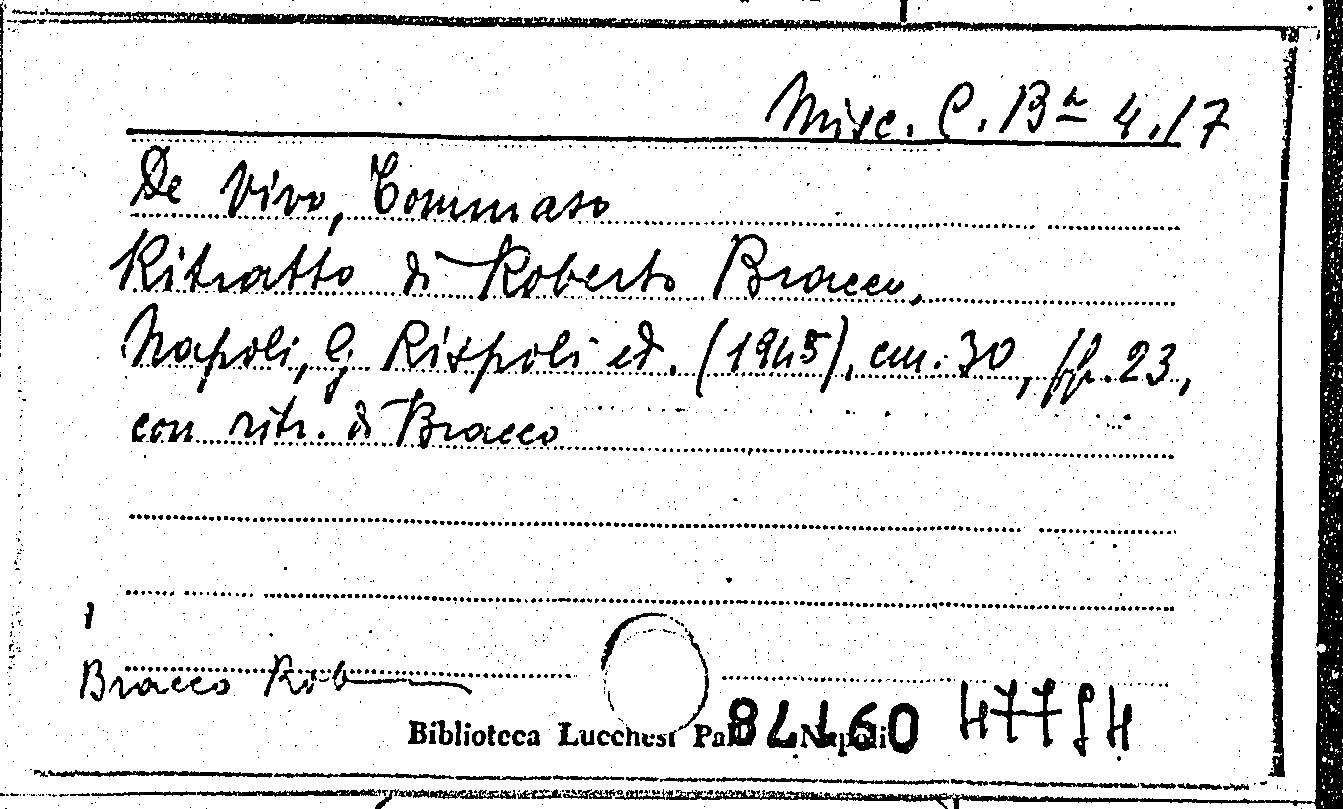 Misc. C. Bª 4./7
De Vivo, Tommaso
Ritratto di Roberto Bracco,
Napoli, G. Rispoli ed. (1945), cm. 30, pp. 23,
con ritr. di Bracco
1
Bracco Rob
Biblioteca Lucchesi Napoli